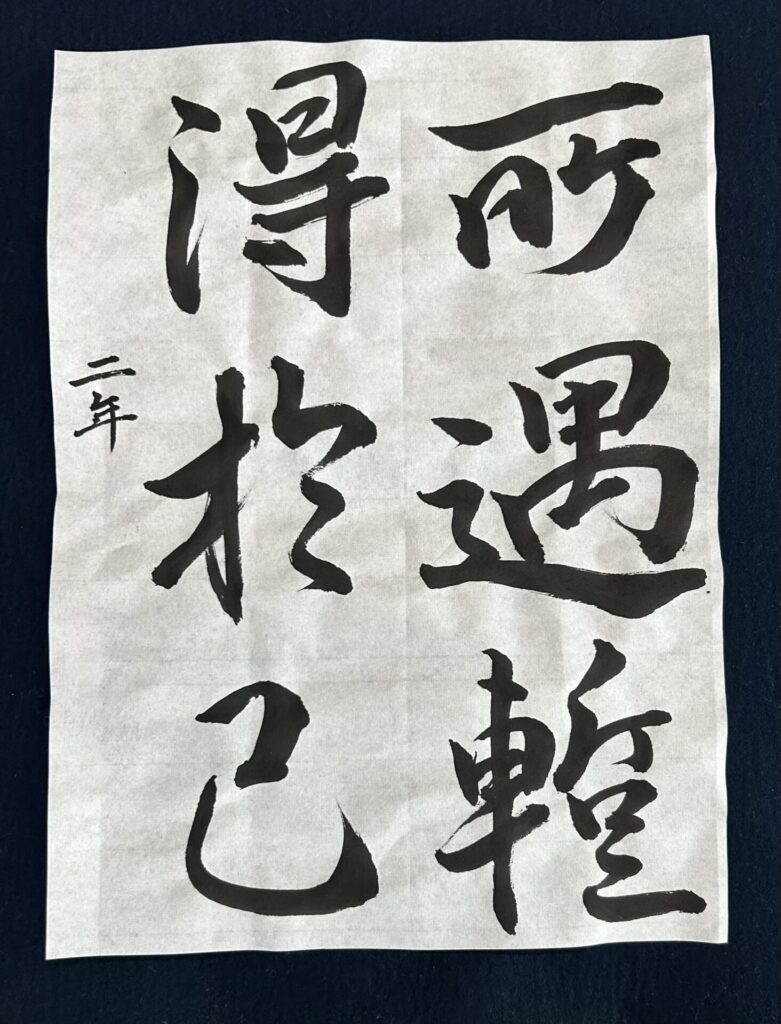 所遇暫
得於己
二年